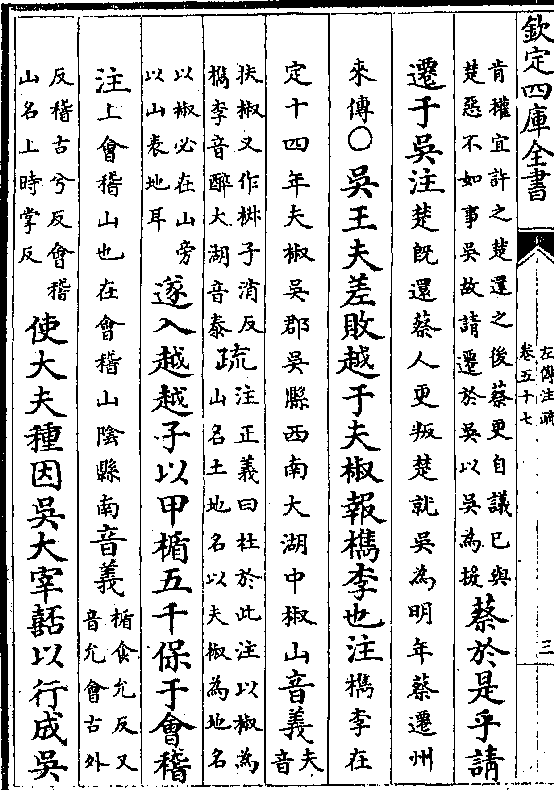 欽定四庫全書
左傳注疏
卷五十七
三
肯權宜許之楚還之後蔡更自議已與
楚惡不如事吳故請遷於吳以吳為援
蔡於是乎請
遷于吳注楚旣還蔡人更叛楚就吳為明年蔡遷州
來傳○吳王夫差敗越于夫椒報檇李也注檇李在
定十四年夫椒吳郡吳縣西南大湖中椒山音義夫音
扶椒又作椒子消反
檇李音醉大湖音泰
疏注正義曰杜於此注以椒為
山名土地名以夫椒為地名
以椒必在山旁
以山表地耳
遂入越越子以甲楯五千保于會稽
注上會稽山也在會稽山隂縣南音義
楯食允反又
音允會古外
反稽古兮反會稽
山名上時掌反
使大夫種因吳大宰嚭以行成吳